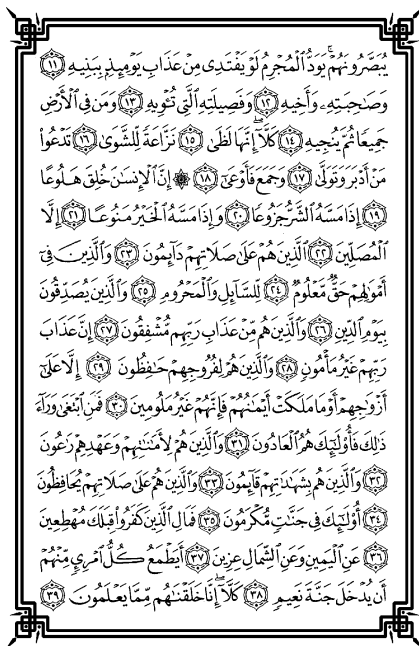 يُبَصَّرُونَهُمْ ۚ يَوَدُّ الْمُجْرِمُ لَوْ يَفْتَدِى مِنْ عَذَابِ يَوْمِئِذٍۭ بِبَنِيهِ ١١
وَصَٰحِبَتِهِۦ وَأَخِيهِ ١٢ وَفَصِيلَتِهِ الَّتِى تُـْٔوِيهِ ١٣ وَمَن فِى الْأَرْضِ
جَمِيعًا ثُمَّ يُنجِيهِ ١٤ كَلَّآ ۖ إِنَّهَا لَظَىٰ ١٥ نَزَّاعَةً لِّلشَّوَىٰ ١٦ تَدْعُوا۟
مَنْ أَدْبَرَ وَتَوَلَّىٰ ١٧ وَجَمَعَ فَأَوْعَىٰٓ ١٨ ۞ إِنَّ الْإِنسَٰنَ خُلِقَ هَلُوعًا
١٩ إِذَا مَسَّهُ الشَّرُّ جَزُوعًا ٢٠ وَإِذَا مَسَّهُ الْخَيْرُ مَنُوعًا ٢١ إِلَّا
الْمُصَلِّينَ ٢٢ الَّذِينَ هُمْ عَلَىٰ صَلَاتِهِمْ دَآئِمُونَ ٢٣ وَالَّذِينَ فِىٓ
أَمْوَٰلِهِمْ حَقٌّ مَّعْلُومٌ ٢٤ لِّلسَّآئِلِ وَالْمَحْرُومِ ٢٥ وَالَّذِينَ يُصَدِّقُونَ
بِيَوْمِ الدِّينِ ٢٦ وَالَّذِينَ هُم مِّنْ عَذَابِ رَبِّهِم مُّشْفِقُونَ ٢٧ إِنَّ عَذَابَ
رَبِّهِمْ غَيْرُ مَأْمُونٍ ٢٨ وَالَّذِينَ هُمْ لِفُرُوجِهِمْ حَٰفِظُونَ ٢٩ إِلَّا عَلَىٰٓ
أَزْوَٰجِهِمْ أَوْ مَا مَلَكَتْ أَيْمَٰنُهُمْ فَإِنَّهُمْ غَيْرُ مَلُومِينَ ٣٠ فَمَنِ ابْتَغَىٰ وَرَآءَ
ذَٰلِكَ فَأُو۟لَٰٓئِكَ هُمُ الْعَادُونَ ٣١ وَالَّذِينَ هُمْ لِأَمَٰنَٰتِهِمْ وَعَهْدِهِمْ رَٰعُونَ
٣٢ وَالَّذِينَ هُم بِشَهَٰدَٰتِهِمْ قَآئِمُونَ ٣٣ وَالَّذِينَ هُمْ عَلَىٰ صَلَاتِهِمْ يُحَافِظُونَ
٣٤ أُو۟لَٰٓئِكَ فِى جَنَّٰتٍ مُّكْرَمُونَ ٣٥ فَمَالِ الَّذِينَ كَفَرُوا۟ قِبَلَكَ مُهْطِعِينَ
٣٦ عَنِ الْيَمِينِ وَعَنِ الشِّمَالِ عِزِينَ ٣٧ أَيَطْمَعُ كُلُّ امْرِئٍ مِّنْهُمْ
أَن يُدْخَلَ جَنَّةَ نَعِيمٍ ٣٨ كَلَّآ ۖ إِنَّا خَلَقْنَٰهُم مِّمَّا يَعْلَمُونَ ٣٩